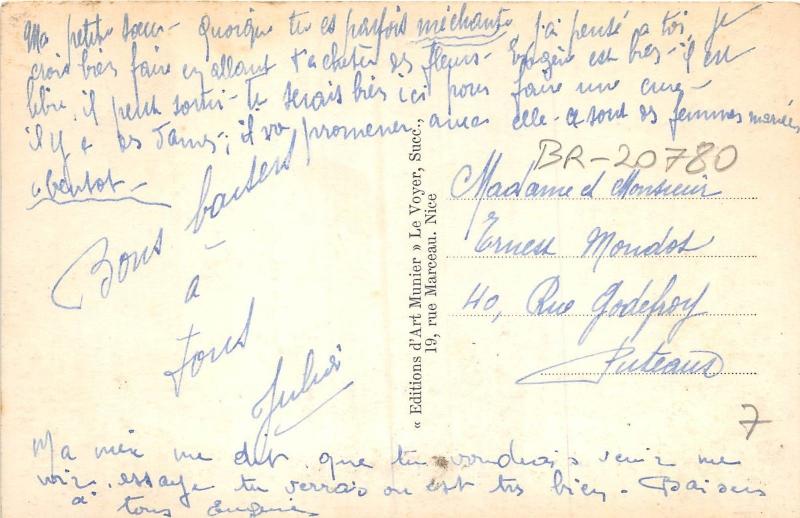 Ma petite sœur - quoique tu es parfois méchante j'ai pensé a toi, je
crois bien faire en allant t'acheter des fleurs - Eugène est bien - il est
libre, il peut sortir - tu serais bien ici pour faire une cure -
il y a des dames; il va promener avec elle - a sont des femmes mariées
a bientot -
Bons baisers
a
tous
Julien
Ma mère me dit que tu voudrais venir me
voir. essaye tu verras on est très bien - Baisers
a tous Eugène
« Editions d'Art Munier » Le Voyer, Succ.,
19, rue Marceau. Nice
BR-20780
Madame et Monsieur
Ernest Mondot
40, Rue Godefroy
Puteaux
7